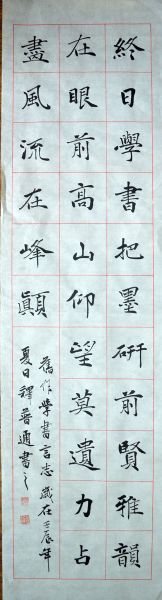 終日學書把墨研前賢雅韻
在眼前高山仰望莫遺力占
盡風流在峰顛
舊作學書言志歲在壬辰年
夏日釋普通書之